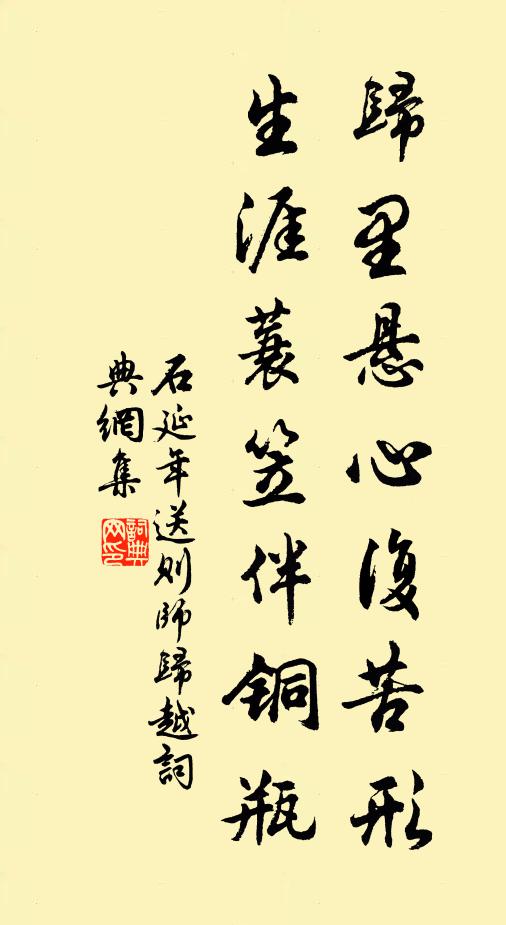 歸里懸心復苦形
生涯蓑笠伴銅瓶
石延年送則師歸越詞
典網集
詞典
网印